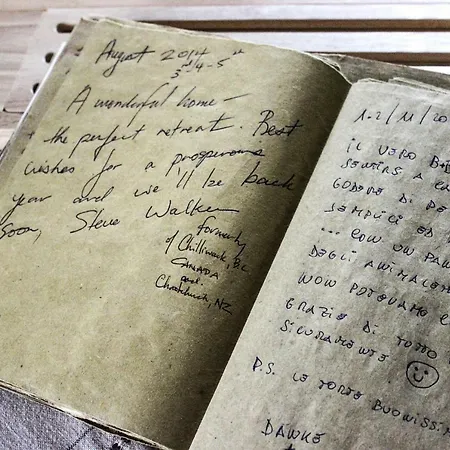 August 2014
3rd 4-5th
A wonderful home –
the perfect retreat. Best
wishes for a prosperous
year and we'll be back
soon, Steve Walker
formerly
of Chilliwack, BC
CANADA
and
Christchurch, NZ
1-2/11/20
IL VERO B
SENTIRS A CA
GODERE DI
SEMPLICI ED
... CON UN PAN
DEGLI ANIMALE
NON POTEVAMO C
GRAZIE DI TUTTO
SICURAMENTE
P.S. LE TORTE BUONISSIM
DANKE